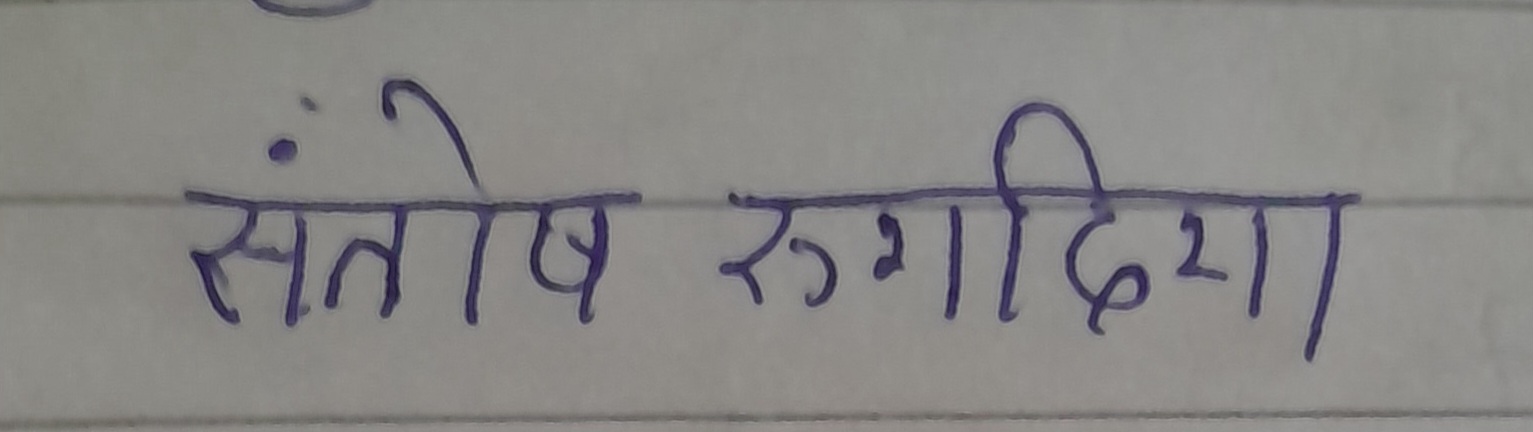 संतोष रुगदिया